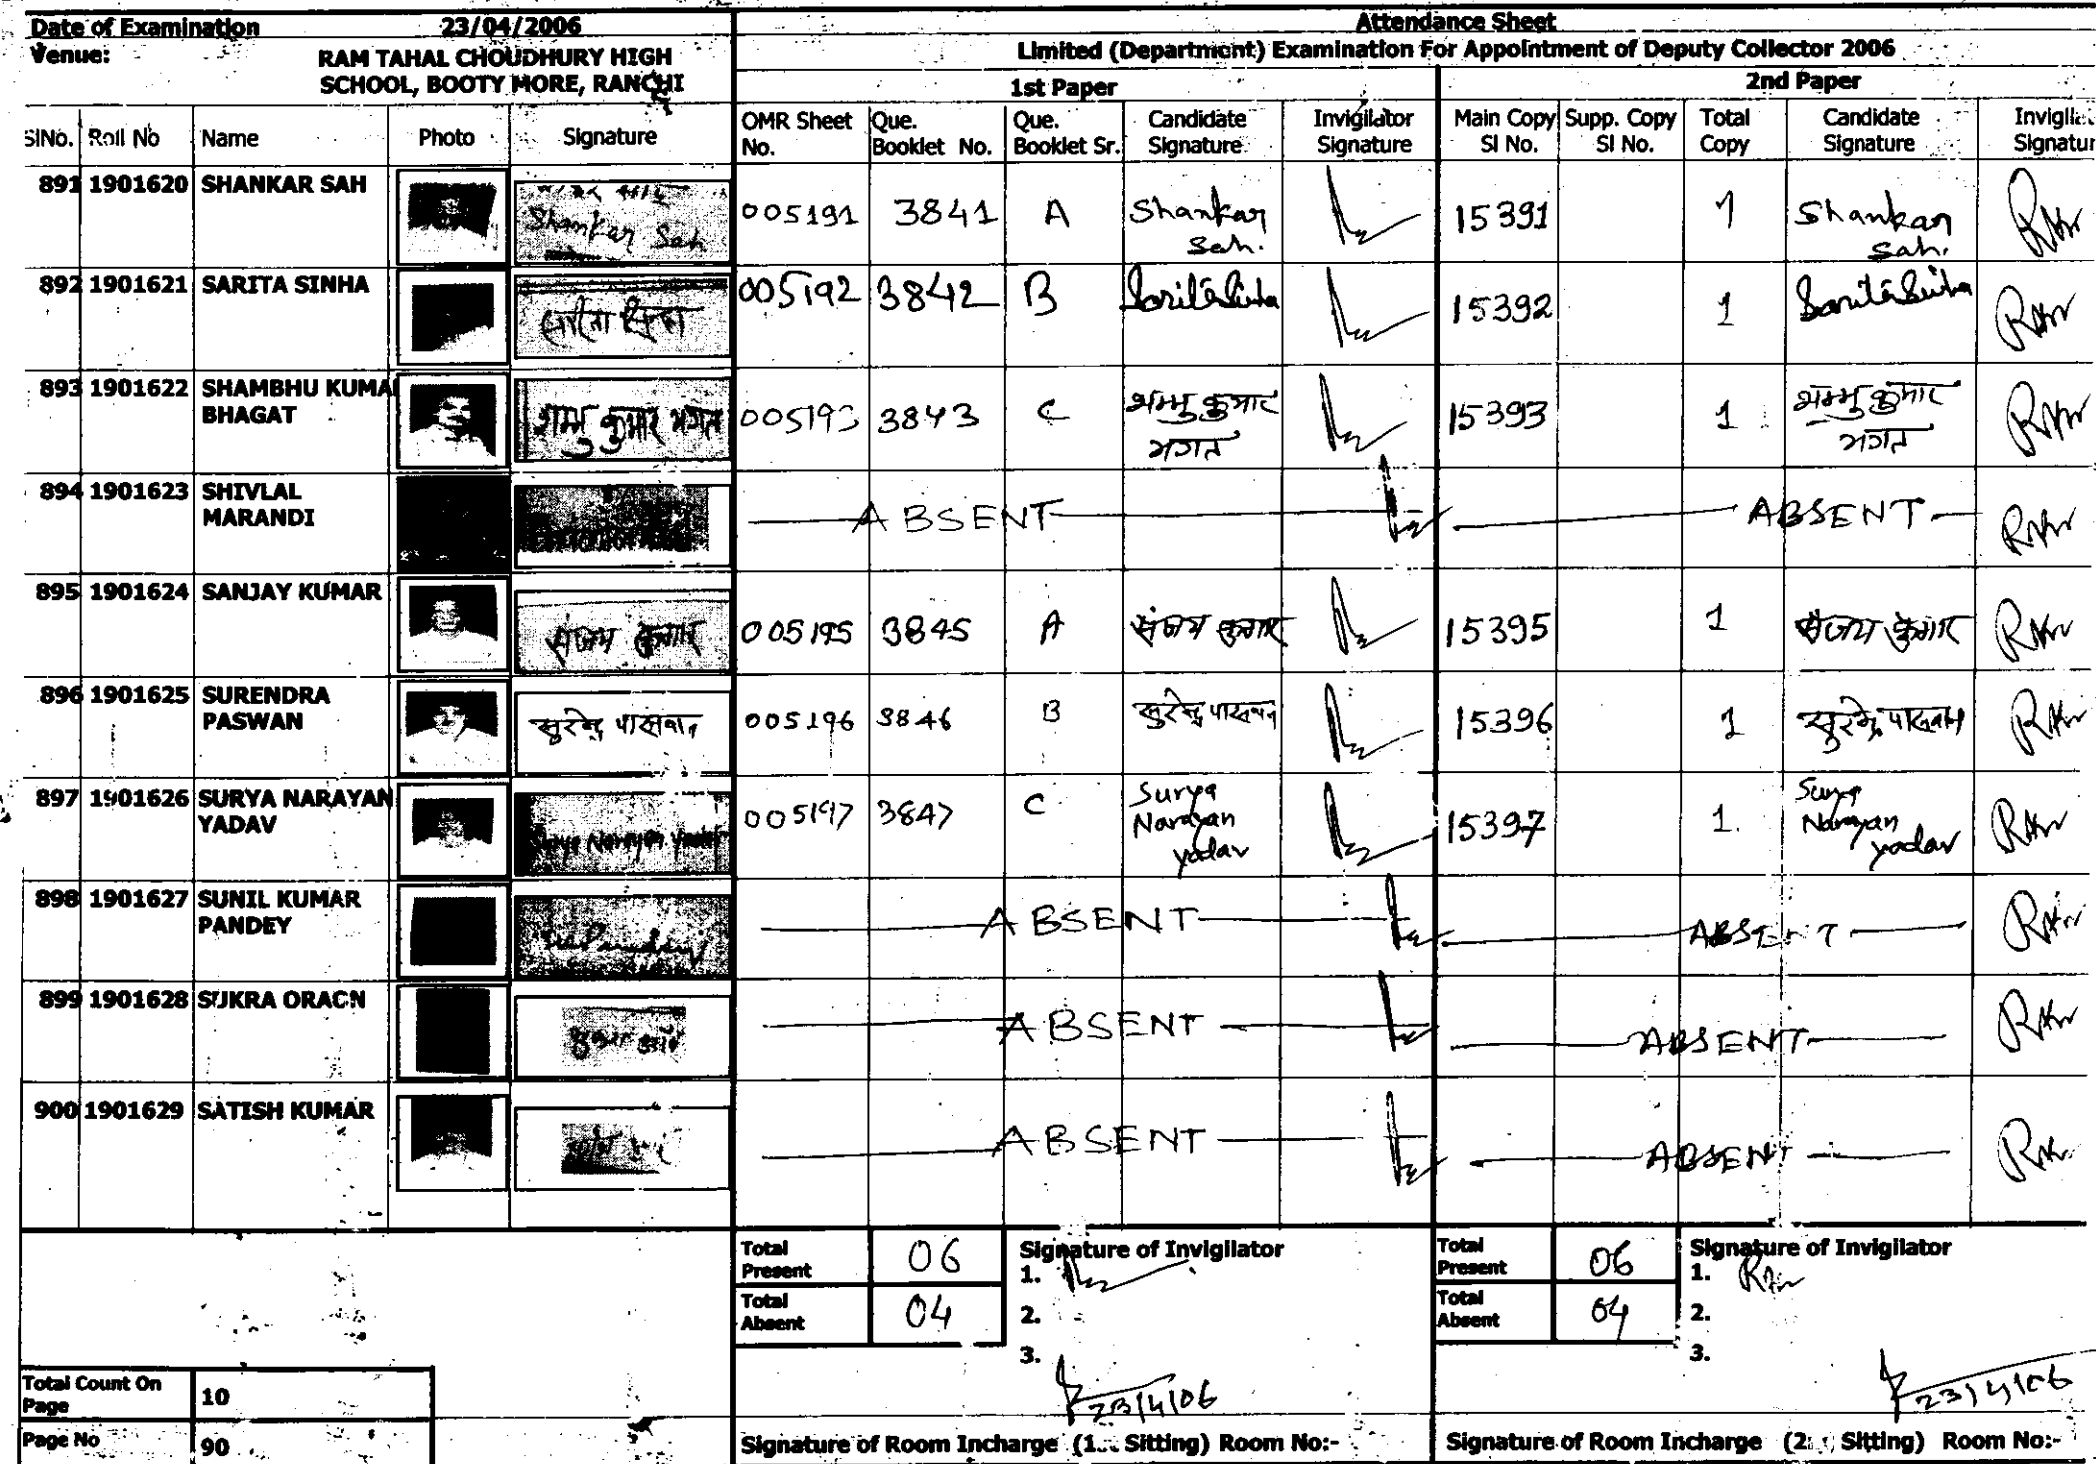 Date of Examination 23/04/2006
Venue: RAM TAHAL CHOUDHURY HIGH
SCHOOL, BOOTY MORE, RANCHI
Attendance Sheet
Limited (Department) Examination For Appointment of Deputy Collector 2006
1st Paper 2nd Paper
SlNo. Roll No Name Photo Signature OMR Sheet No. Que. Booklet No. Que. Booklet Sr. Candidate Signature Invigilator Signature Main Copy Sl No. Supp. Copy Sl No. Total Copy Candidate Signature
891 1901620 SHANKAR SAH Shankar Sah 005191 3841 A Shankar Sah. 15391 1 Shankar Sah.
892 1901621 SARITA SINHA सरीता सिन्हा 005192 3842 B Sarita Sinha 15392 1 Sarita Sinha
893 1901622 SHAMBHU KUMA BHAGAT शम्भु कुमार भगत 005193 3843 C शम्भु कुमार भगत 15393 1 शम्भु कुमार भगत
894 1901623 SHIVLAL MARANDI ABSENT ABSENT
895 1901624 SANJAY KUMAR संजय कुमार 005195 3845 A संजय कुमार 15395 1 संजय कुमार
896 1901625 SURENDRA PASWAN सुरेन्द्र पासवान 005196 3846 B सुरेन्द्र पासवान 15396 1 सुरेन्द्र पासवान
897 1901626 SURYA NARAYAN YADAV Surya Narayan Yadav 005197 3847 C Surya Narayan yadav 15397 1. Surya Narayan yadav
898 1901627 SUNIL KUMAR PANDEY ABSENT ABSENT
899 1901628 SUKRA ORAON ABSENT ABSENT
900 1901629 SATISH KUMAR ABSENT ABSENT
Total Present 06 Signature of Invigilator Total Present 06 Signature of Invigilator
1. 1.
Total Absent 04 2. Total Absent 04 2.
3. 3.
23/4/06 23/4/06
Total Count On Page 10
Page No 90
Signature of Room Incharge Sitting) Room No:- Signature of Room Incharge Sitting) Room No:-